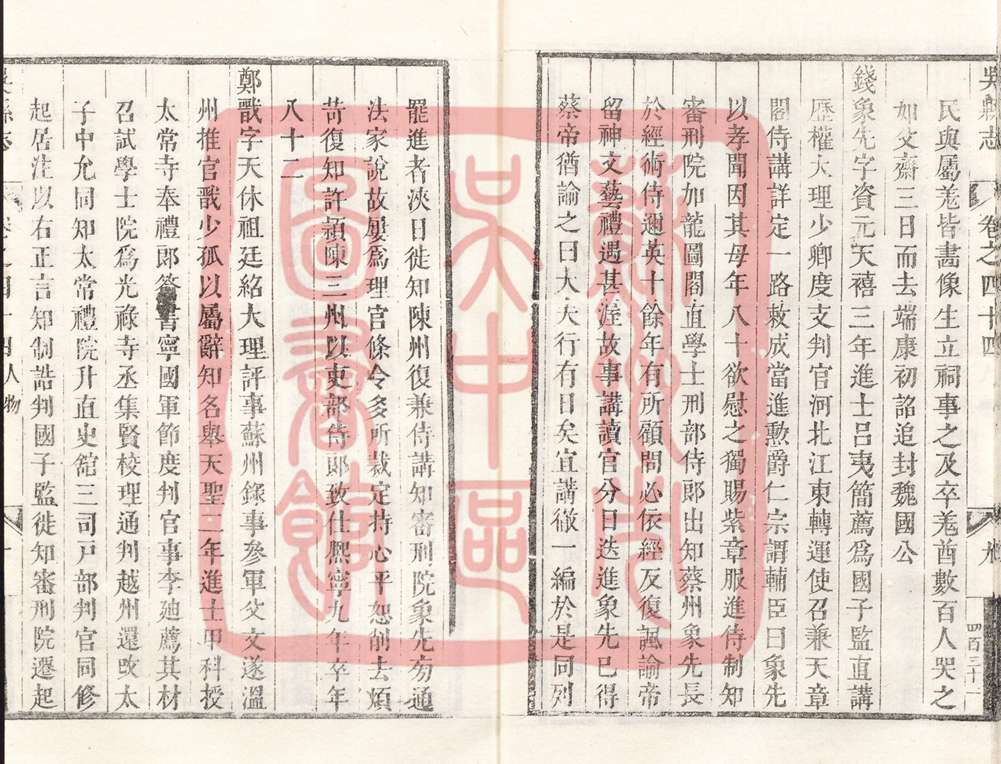 吳縣志
卷之四十四
四百三十一
民與屬羗皆畫像生立祠事之及卒羗酋數百人哭之
如父齋三日而去端康初詔追封魏國公
錢象先字資元天禧三年進士呂夷簡薦為國子監直講
歷權大理少卿度支判官河北江東轉運使召兼天章
閣侍講詳定一路敕成當進勲爵仁宗謂輔臣曰象先
以孝聞因其母年八十欲慰之獨賜紫章服進侍制知
審刑院加龍圖閣直學士刑部侍郎出知蔡州象先長
於經術侍邇英十餘年有所顧問必依經反復諷諭帝
留神文藝禮遇甚渥故事講讀官分日迭進象先已得
蔡帝猶諭之曰大夫行有日矣宜講徹一編於是同列
罷進者浹日徙知陳州復兼侍講知審刑院象先旁通
法家說故屢為理官條令多所裁定持心平恕削去煩
苛復知許潁陳三州以吏部侍郎致仕熙寧九年卒年
八十二
鄭戩字天休祖廷紹大理評事蘇州錄事參軍父文遂溫
州推官戩少孤以屬辭知名舉天聖二年進士甲科授
太常寺奉禮郎簽書寧國軍節度判官事李廸薦其材
召試學士院為光祿寺丞集賢校理通判越州還改太
子中允同知太常禮院升直史舘三司戸部判官同修
起居注以右正言知制誥判國子監徙知審刑院遷起
人物
蘇州市
吳中區
圖書館